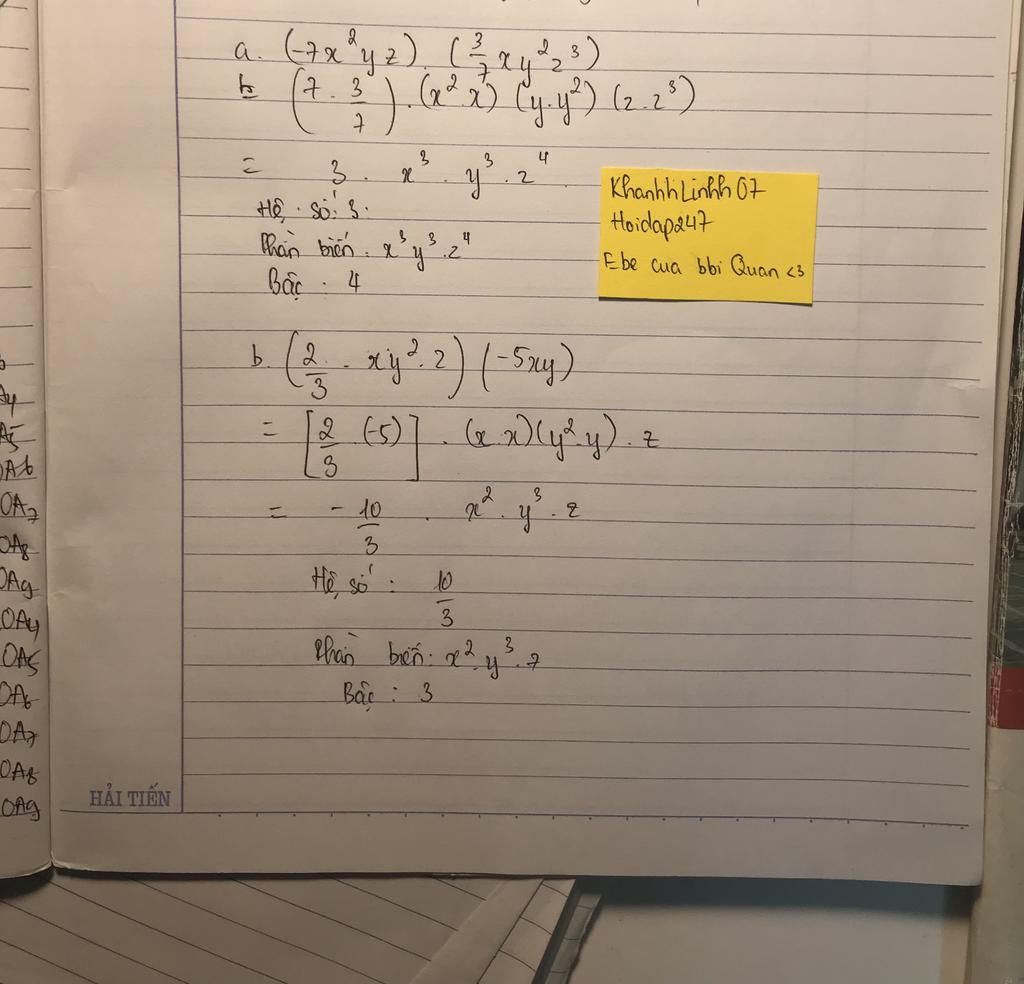 a. (-7x²yz). (3/7 xy²z³)
(7 . 3/7) . (x².x) (y.y²) (z.z³)
= 3 . x³ . y³ . z⁴
Hệ số: 3.
Phần biến: x³y³.z⁴
Bậc : 4
KhanhhLinhh07
Hoidap247
Ebe cua bbi Quan <3
b. (2/3 . xy².z) (-5xy)
= [2/3 . (-5)] . (x.x)(y².y) . z
= -10/3 . x² . y³ . z
Hệ số : 10/3
Phần biến: x².y³.z
Bậc : 3
OA7
OA8
OA9
OA4
OA5
OA6
OA7
OA8
OA9
HẢI TIẾN